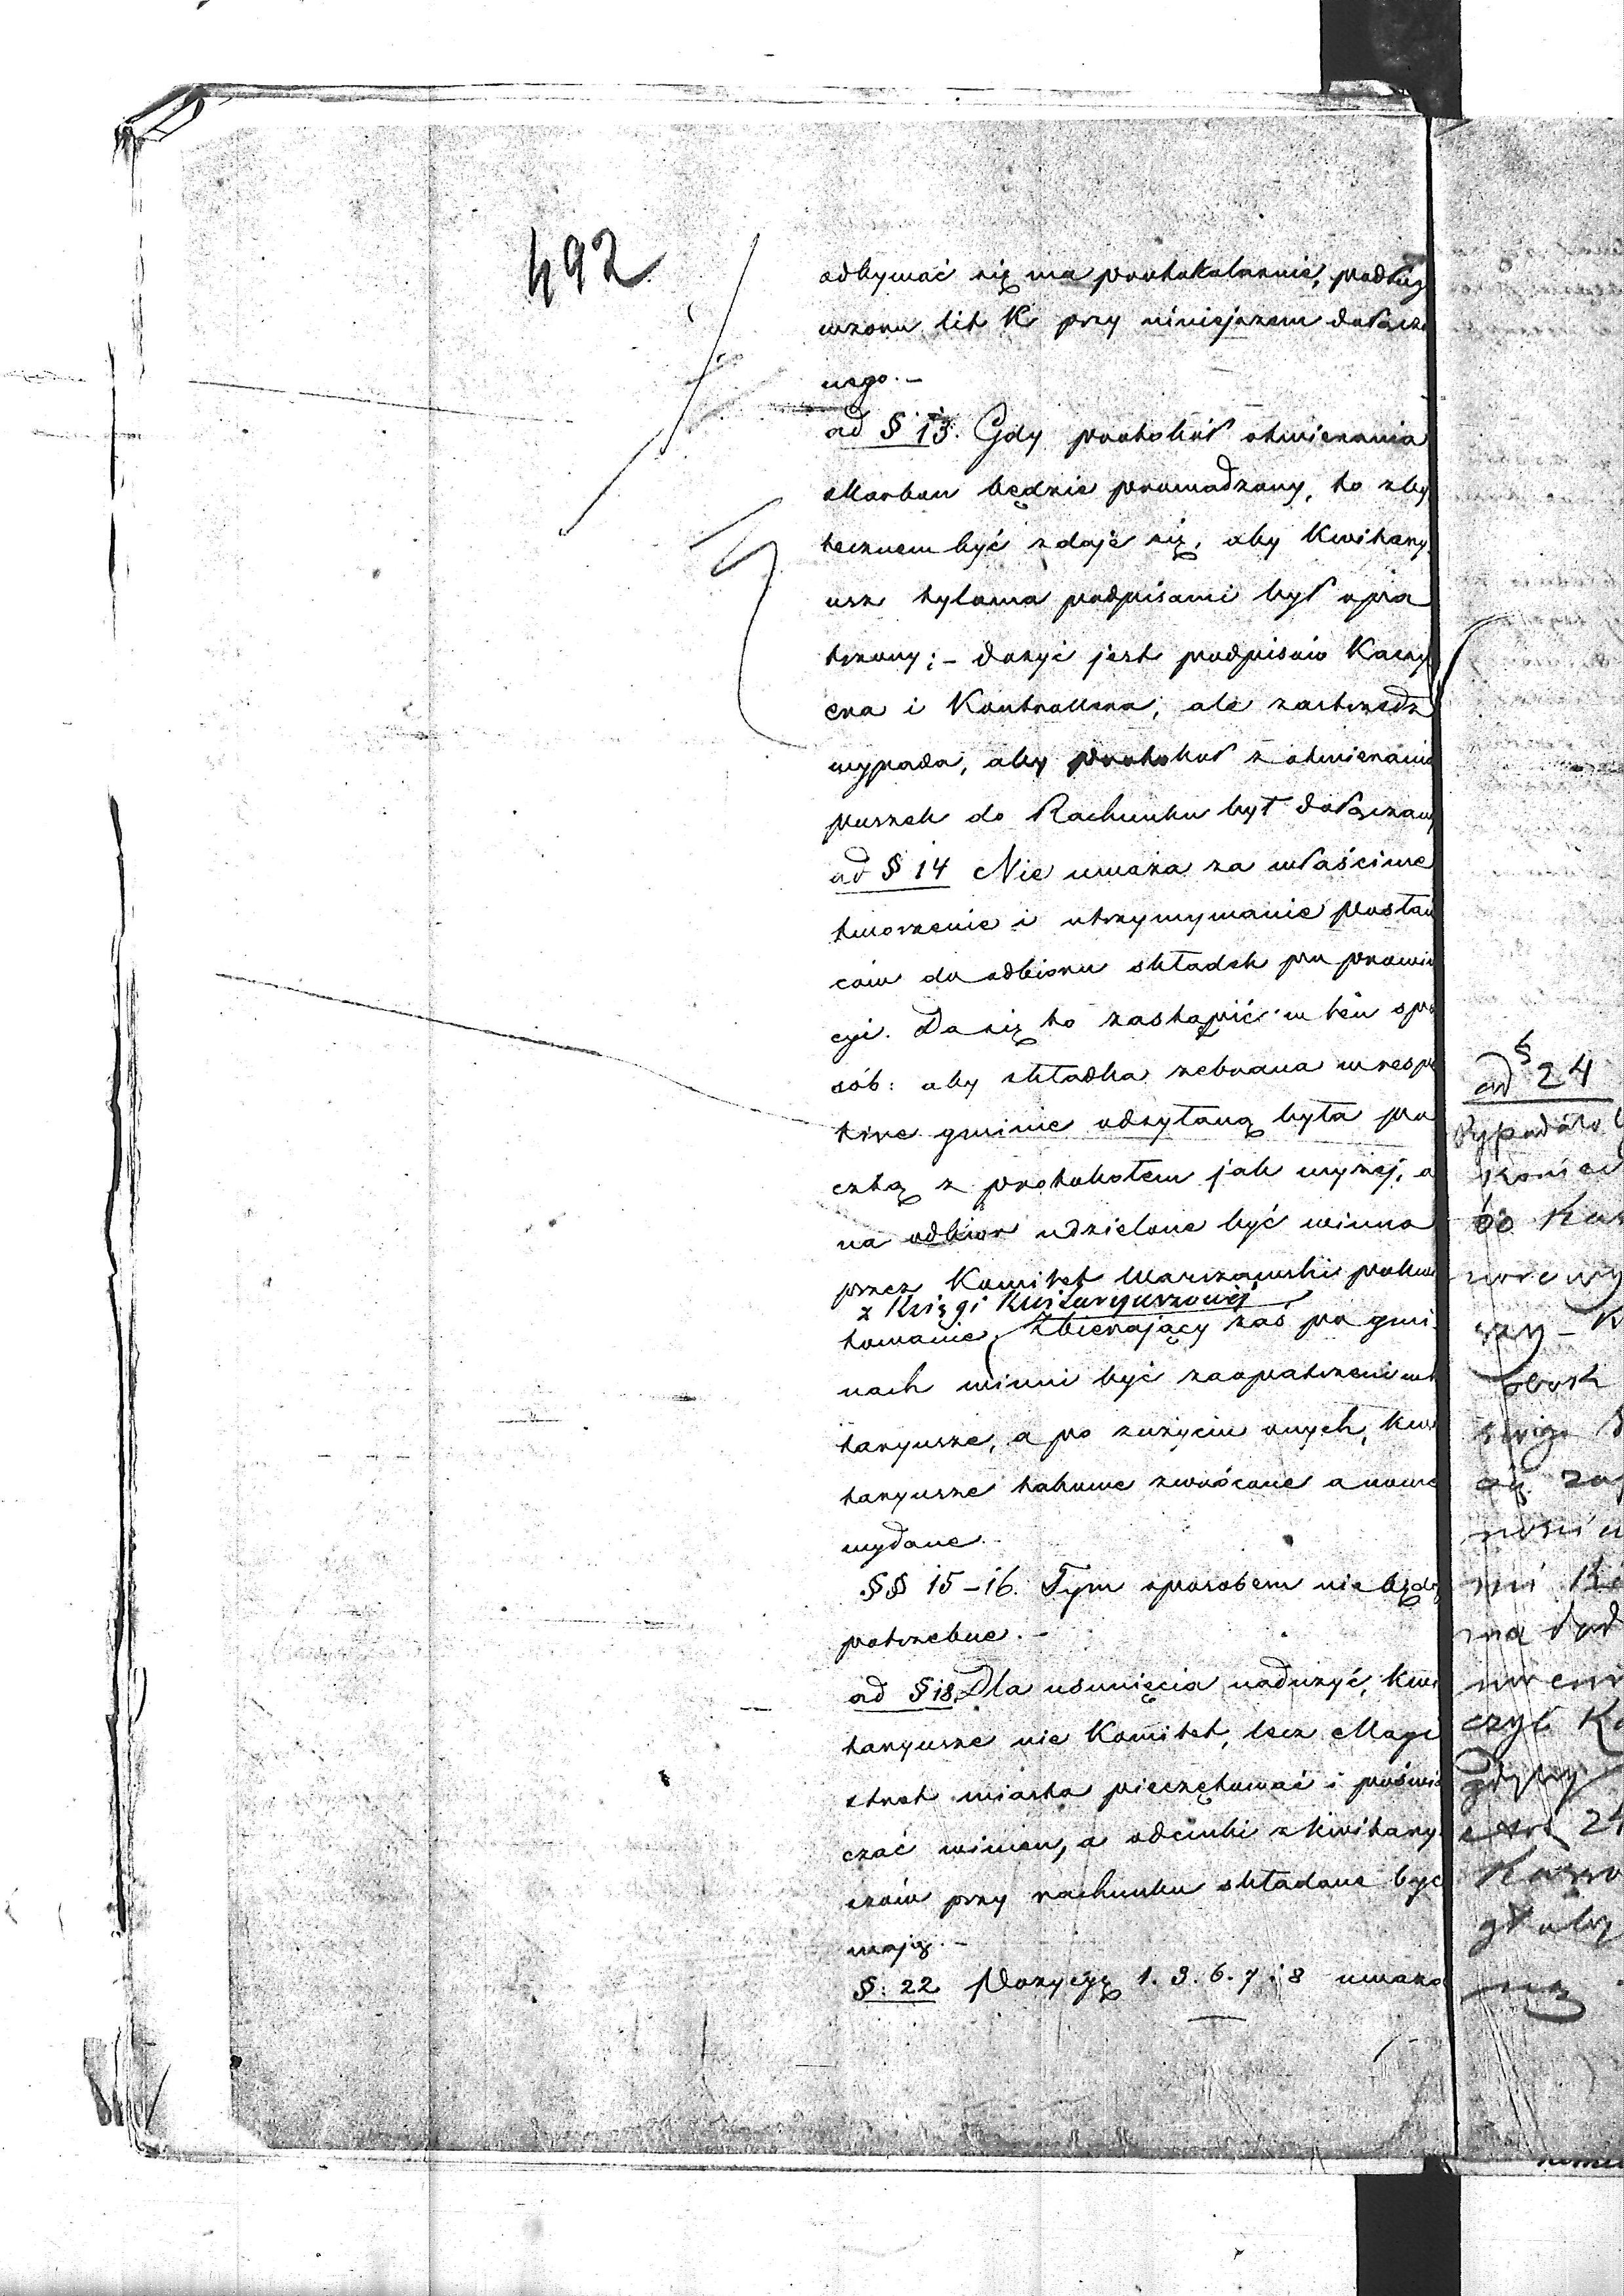 492
odbywać się ma protokolarnie, podług
wzoru lit K przy niniejszem dołącza
nego.-
ad § 13. Gdy protokół otwierania
skarbon będzie prowadzony, to zby
tecznem być zdaje się, aby Kwitary
usz tyloma podpisami był opa
trzony; - dosyć jest podpisów Kassy
era i Kontrollera, ale zastrzedz
wypada, aby protokół z otwierania
puszek do Rachunku był dołączany
ad § 14 Nie uważa za właściwe
tworzenie i utrzymywanie posłań
ców do odbioru składek po prowin
cyi. Da się to zastąpić w ten spo
sób: aby składka zebrana w respe
ktive gminie odsyłaną była po
cztą z protokołem jak wyżej, a
na odbior udzielone być winno
przez Komitet Warszawski pokwi
z Księgi Kwitaryuszowej
towanie, Zbierający zaś po gmi
nach winni być zaopatrzeni w k
taryusze, a po zużyciu onych, kwi
taryusze takowe zwrócone a nowe
wydane.
§§ 15-16. Tym sposobem nie będą
potrzebne.-
ad § 18. Dla usunięcia nadużyć, kwi
taryusze nie Komitet, lecz Magi
strat miasta pieczętować i poświa
czać winien, a odcinki z kwitary
szów przy rachunku składane być
mają.-
§: 22 Pozycyę 1. 3. 6. 7. i 8 uważa
ad § 24